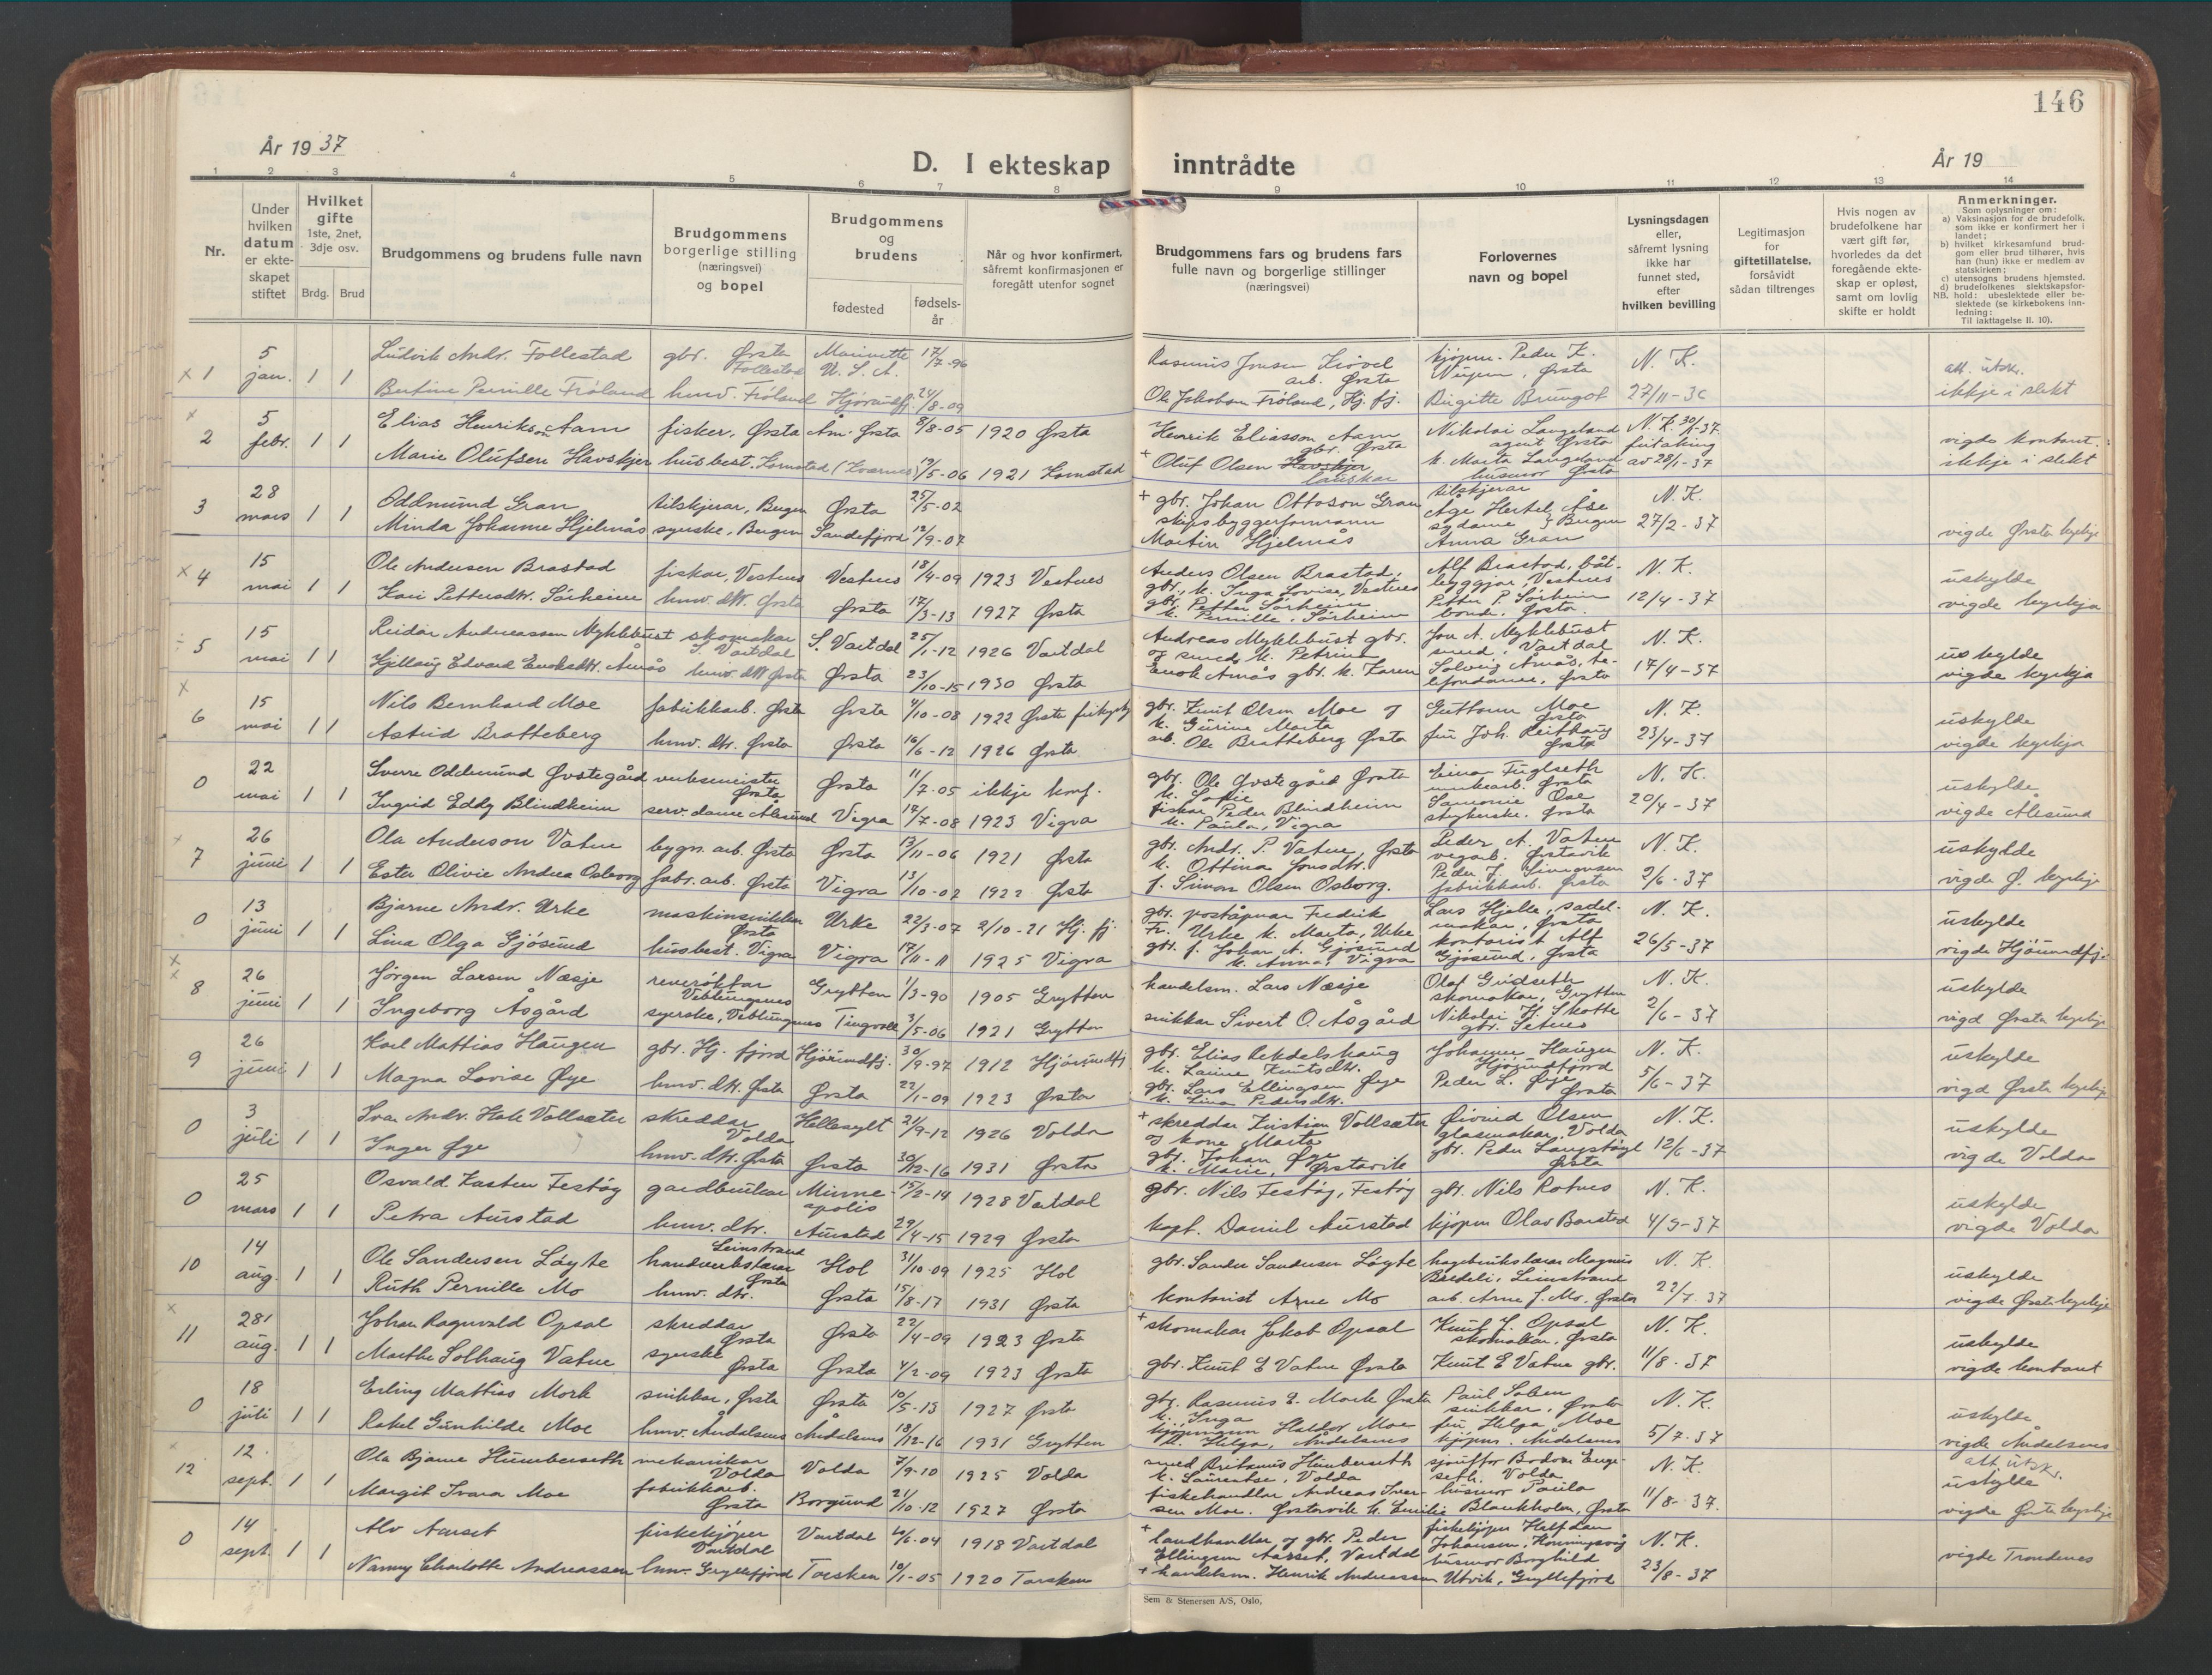 146
År 19 37
D. I ekteskap inntrådte
År 19
1 2 3 4 5 6 7 8 9 10 11 12 13 14
Nr.
Under hvilken datum er ekteskapet stiftet
Hvilket gifte 1ste, 2net, 3dje osv.
Brdg. Brud
Brudgommens og brudens fulle navn
Brudgommens borgerlige stilling (næringsvei) og bopel
Brudgommens og brudens
fødested
fødselsår
Når og hvor konfirmert, såfremt konfirmasjonen er foregått utenfor sognet
Brudgommens fars og brudens fars fulle navn og borgerlige stillinger (næringsvei)
Forlovernes navn og bopel
Lysningsdagen eller, såfremt lysning ikke har funnet sted, efter hvilken bevilling
Legitimasjon for giftetillatelse, forsåvidt sådan tiltrenges
Hvis nogen av brudefolkene har vært gift før, hvorledes da det foregående ekteskap er opløst, samt om lovlig skifte er holdt
Anmerkninger.
Som oplysninger om:
a) Vaksinasjon for de brudefolk, som ikke er konfirmert her i landet;
b) hvilket kirkesamfund brudgom eller brud tilhører, hvis han (hun) ikke er medlem av statskirken;
c) utensogns brudens hjemsted.
d) brudefolkenes slektskapsforhold: ubeslektede eller beslektede (se kirkebokens innledning:
NB.
Til iakttagelse II. 10).
x 1 5 jan. 1 1 Ludvik Andr. Follestad gbr. Ørsta Follestad U. S. A. 17/7-96 Rasmus arb. Ørsta kjøpm. Peder K. Ørsta N. K. att. utskr.
Bertine Pernille Fróland husv. Fróland Hjørundfj. 24/8-09 Ole Jakobsen Fróland, Hj. fj. Birgitte Brungot 27/11-36 ikkje i slekt
x 2 5 febr. 1 1 Elias Henrikson Aam fisker, Ørsta Åm Ørsta 8/8-05 1920 Ørsta Henrik Eliasson Aam gbr. Ørsta Nikolai Langeland agent Ørsta N. K. 30/1-37 vigde kontoret.
Marie Olufsen Havskjer husbest. 19/5-06 1921 + Oluf Olsen Havskjer k. Marta Langeland husmor Ørsta av 28/1-37 ikkje i slekt
3 28 mars 1 1 Oddmund Gran tilskjerar, Bergen Ørsta 25/5-02 + gbr. Johan Ottoson Gran tilskjerar Åge Hertel Åse N. K.
Minda Johanne Hjelmås syerske, Bergen Sandefjord 12/9-07 skipsbyggerformann Martin Hjelmås sydame Bergen Anna Gran 27/2-37 vigde Ørsta kyrkje
x 4 15 mai 1 1 Ole Andersen Brastad fiskar, Vestnes Vestnes 18/4-09 1923 Vestnes Anders Olsen Brastad, gbr., k. Inga Lovise, Vestnes Alf Brastad, båtbyggjar, Vestnes N. K. uskylde
Kari Pettersdtr. Sórheim husv. dtr. Ørsta Ørsta 17/3-13 1927 Ørsta gbr. Petter Sórheim k. Pernille, Sórheim Petter P. Sórheim bonde. Ørsta. 12/4-37 vigde kyrkja
5 15 mai 1 1 Reidar Andreassen Myklebust skomakar S. Vartdal S. Vartdal 25/1-12 1926 Vartdal Andreas Myklebust gbr. og smed, k. Petrina Jon A. Myklebust smed, Vartdal N. K. uskylde
Hjellaug Edvard Enoksdtr. Åmås husv. dtr Ørsta Ørsta 23/10-15 1930 Ørsta Enok Åmås gbr. k. Karen Solveig Åmås, telefondame, Ørsta 17/4-37 vigde kyrkja
x 6 15 mai 1 1 Nils Bernhard Moe fabrikkarb. Ørsta Ørsta 9/10-08 1922 Ørsta frikyrkj gbr. Knut Olsen Moe og k. Gurine Marta Guttorm Moe Ørsta N. K. uskylde
Astrid Bratteberg husv. dtr. Ørsta Ørsta 16/6-12 1926 Ørsta arb. Ole Bratteberg Ørsta frú Joh. Reithaug Ørsta 23/4-37 vigde kyrkja
0 22 mai 1 1 Sverre Oddmund Øvstegård verksmeister Ørsta Ørsta 11/7-05 ikkje konf. gbr. Ole Øvstegård Ørsta k. Sofie Einar Fuglseth Ørsta N. K. uskylde
Ingrid Eddy Blindheim serv. dame Ålesund Vigra 17/7-08 1923 Vigra fiskar Peder Blindheim k. Paula, Vigra Ose strykerske, Ørsta 20/4-37 vigde Ålesund
7 26 juni 1 1 Ola Anderson Vatne bygn. arb. Ørsta Ørsta 13/11-06 1921 Ørsta gbr. Andr. P. Vatne, Ørsta k. Ottina Jonsdtr. Peder A. Vatne vegarb. Ørstavik N. K. uskylde
Ester Olivie Andrea Osborg fabr. arb. Ørsta Vigra 13/10-02 1922 Ørsta f. Simon Olsen Osborg. Peder J. Simonsen fabrikkarb. Ørsta 2/6-37 vigde Ø. kyrkje
0 13 juni 1 1 Bjarne Andr. Urke maskinsnikkar Ørsta Urke 22/3-07 2/10-21 Hj. fj. gbr. poståpnar Fredrik Fr. Urke k. Marta, Urke Lars Hjelle, sadelmakar, Ørsta N. K. uskylde
Lina Olga Gjósund husbest. Vigra Vigra 17/11-11 1925 Vigra gbr. f. Johan A. Gjósund k. Anna, Vigra kontorist Alf Gjósund, Ørsta 26/5-37 vigde Hjórundfj.
x x 8 26 juni 1 1 Jørgen Larsen Næsje reverøktar Veblungsnes Grytten 1/3-90 1905 Grytten handelsm. Lars Næsje Olaf Gridseth skomakar, Grytten N. K. uskylde
Ingeborg Åsgård syerske, Veblungsnes Tingvoll 3/5-06 1921 Grytten snikkar Sivert O. Åsgård Nikolai H. Skotte gbr. Setnes 2/6-37 vigd Ørsta kyrkje
9 26 juni 1 1 Karl Mattias Haugen gbr. Hj. fjord Hjórundfj. 30/9-97 1912 Hjórundfj gbr. Elias Rekdalshaug k. Laura Knutsdtr. Johannes Haugen Hjórundfjord N. K. uskylde
Magna Lovise Øye husv. dtr. Ørsta Ørsta 22/1-09 1923 Ørsta gbr. Lars Ellingsen Øye k. Lina Pedersdtr. Peder L. Øye Ørsta 5/6-37 vigd Ørsta kyrkje
0 3 juli 1 1 Ivar Andr. Hole Vollsæter skreddar Volda Hellesylt 21/9-12 1926 Volda + skreddar Kristian Vollsæter og kone Marta Øivind Olsen glasmakar, Volda N. K. uskylde
Inger Øye husv. dtr. Ørsta Ørsta 30/12-16 1931 Ørsta gbr. Johan Øye k. Marie, Ørstavik gbr. Peder Langstøyl Ørsta 12/6-37 vigde Volda
0 25 mars 1 1 Osvald Karsten Festóy gardbrukar Minneapolis 15/2-14 1928 Vartdal gbr. Nils Festóy, Festóy gbr. Nils Rotnes N. K. uskylde
Petra Aurstad husv. dtr. Aurstad 29/4-15 1929 Ørsta kapt. Daniel Aurstad kjøpm Olav Barstad 4/3-37 vigde Volda
10 14 aug. 1 1 Ole Sandersen Lóyte handverkslærar Leinstrand Hol 31/10-09 1925 Hol gbr. Sander Sandersen Lóyte hagebrukslærar Magnus Leinstrand N. K. uskylde
Ruth Pernille Mo husv. dtr. Ørsta Ørsta 15/8-17 1931 Ørsta kontorist Arne Mo arb. Arne J. Mo. Ørsta 22/7-37 vigde Ørsta kyrkje
x 11 28 aug. 1 1 Johan Ragnvald Opsal skreddar Ørsta Ørsta 22/4-09 1923 Ørsta + skomakar Jakob Opsal Knut J. Opsal skomakar, Ørsta N. K. uskylde
Marthe Solhaug Vatne syerske Ørsta Ørsta 4/2-09 1923 Ørsta gbr. Knut E Vatne Ørsta Knut E Vatne gbr. 11/8-37 vigde kontoret
0 18 juli 1 1 Erling Mattias Mork snikkar, Ørsta Ørsta 10/5-13 1927 Ørsta gbr. Rasmus E. Mork Ørsta k. Inga Paul snikkar, Ørsta N. K. uskylde
Rakel Gunhilde Moe husv. Åndalsnes Åndalsnes 18/12-16 1931 Grytten kjøpmann Halldor Moe k. Helga, Åndalsnes frú Helga Moe kjøpm. Åndalsnes 5/7-37 vigde Åndalsnes
x 12 12 sept. 1 1 Ola Bjarne Humberseth mekanikar Volda Volda 7/9-10 1925 Volda smed Humberseth k. Laurentse, Volda sjåfør Volda N. K. att. utskr. uskylde
Margit Ivara Moe fabrikkarb. Ørsta Borgund 21/10-12 1927 Ørsta fiskehandlar Andreas Iversen Moe. Ørstavik k. Emilie husmor Paula Blankholm, Ørsta 11/8-37. vigde Ørsta kyrkje
0 14 sept. 1 1 Alv Aarset fiskekjøper Vartdal Vartdal 1918 Vartdal + landhandlar og gbr. Peder Ellingsen Aarset, Vartdal fiskekjøper Halfdan Johansen, Honningsvåg N. K.
Nanny Charlotte Andreassen husv. Gryllefjord Torsken 10/1-05 1920 Torsken + handelsm. Henrik Andreassen husmor Borghild Utvik, Gryllefjord 23/8-37 vigde Trondenes
Sem & Stenersen A/S, Oslo.